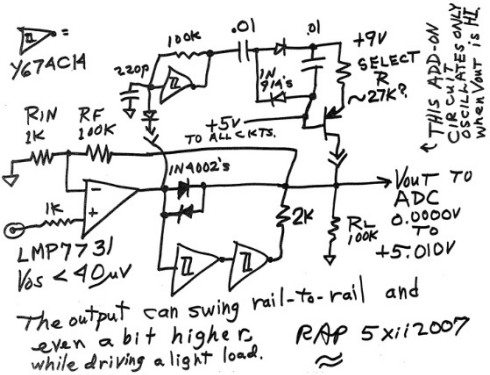 Y6 74C14
=
220p
100K
.01
.01
+9V
SELECT
R
~27K?
1N
914's
+5V
TO ALL CKTS.
↑ THIS ADD-ON
CIRCUIT
OSCILLATES ONLY
when Vout is HI.
RIN
1K
RF
100K
1N4002's
-
+
1K
LMP7731
Vos < 40µV
2K
RL
100K
VOUT TO
ADC
0.0000V
TO
+5.010V
The output can swing rail-to-rail and
even a bit higher,
while driving a light load.
RAP 5xii2007